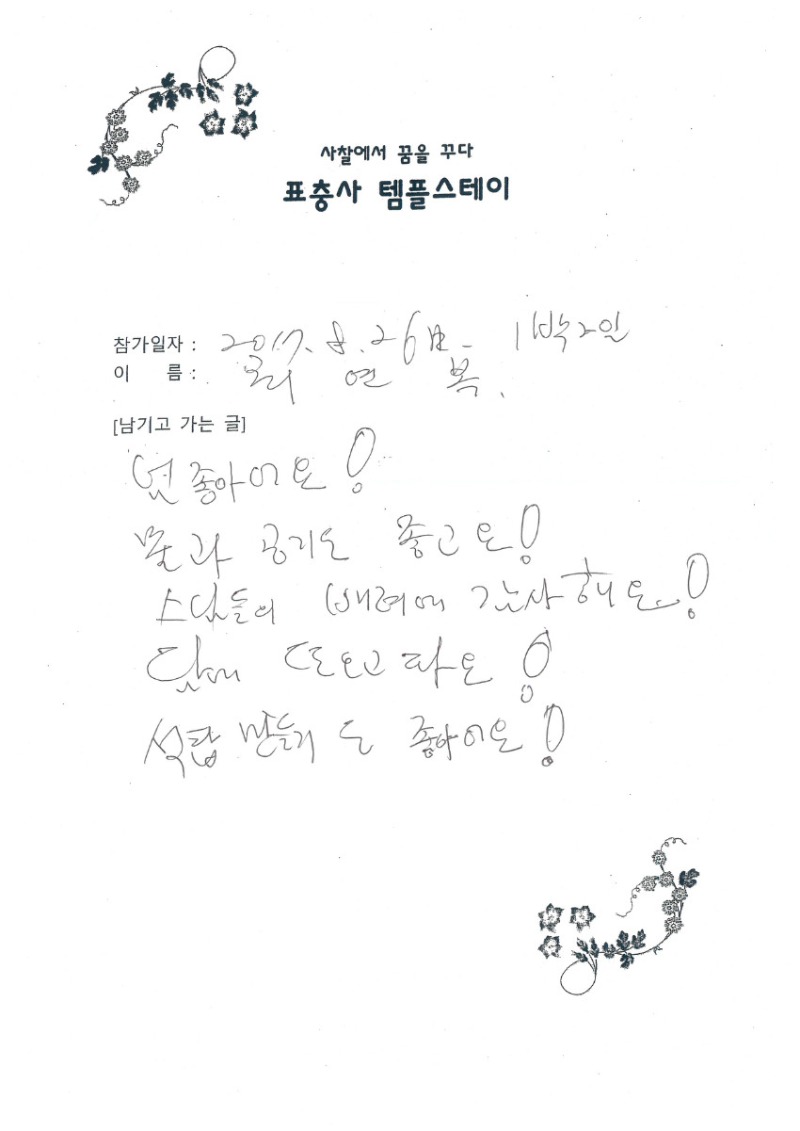 사찰에서 꿈을 꾸다
표충사 템플스테이
참가일자 : 2017. 8. 26日- 1박2일
이 름 : 연 복.
[남기고 가는 글]
넘 좋아어요!
물과 공기도 좋고요!
스님들의 배려에 감사해요!
담에 또 오고파요!
석탑 만들기도 좋아어요!